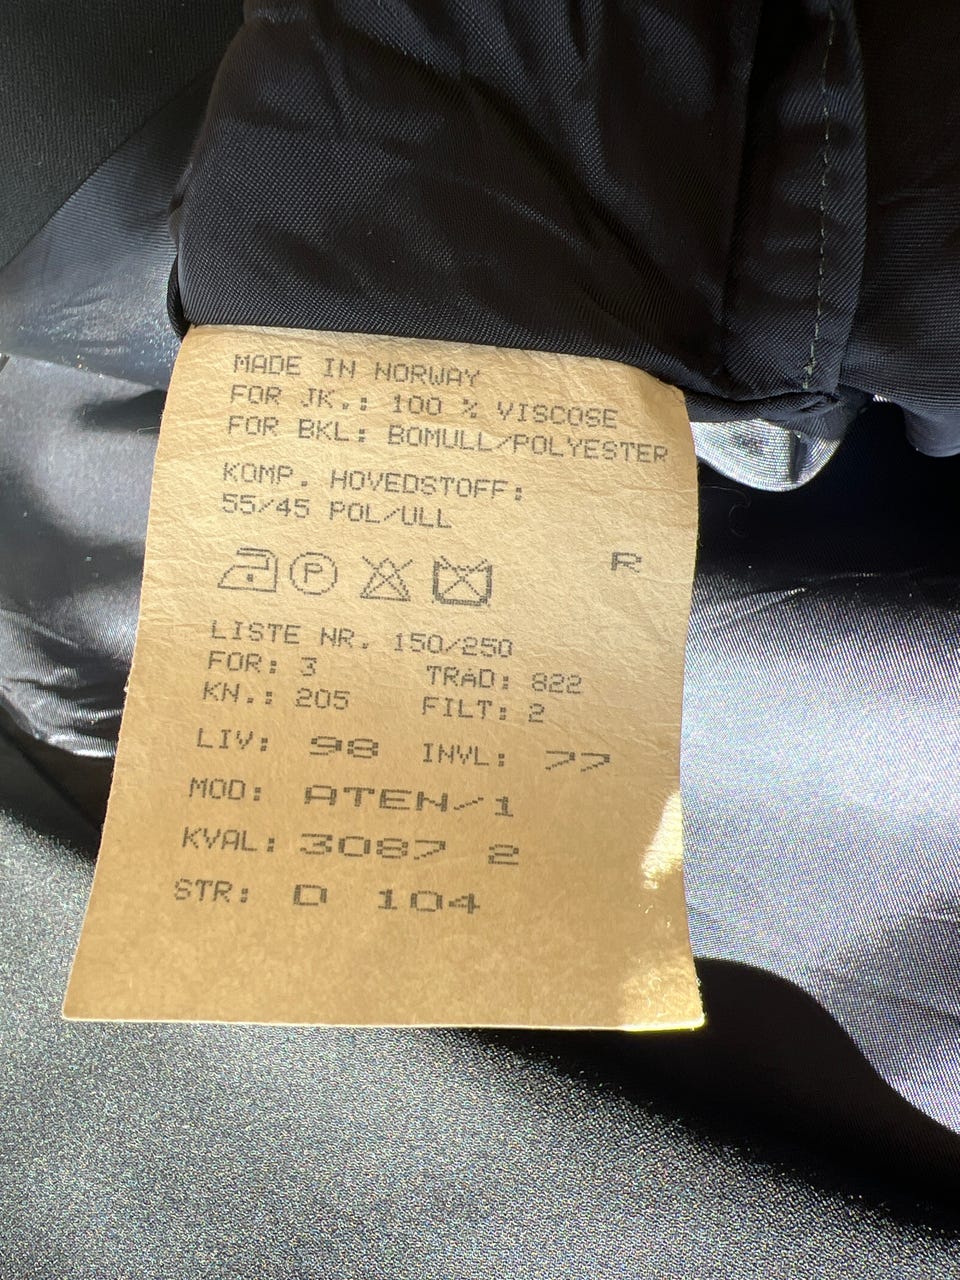 MADE IN NORWAY
FOR JK.: 100 % VISCOSE
FOR BKL: BOMULL/POLYESTER
KOMP. HOVEDSTOFF:
55/45 POL/ULL
P
R
LISTE NR. 150/250
FOR: 3 TRAD: 822
KN.: 205 FILT: 2
LIV: 98 INVL: 77
MOD: ATEN/1
KVAL: 3087 2
STR: D 104